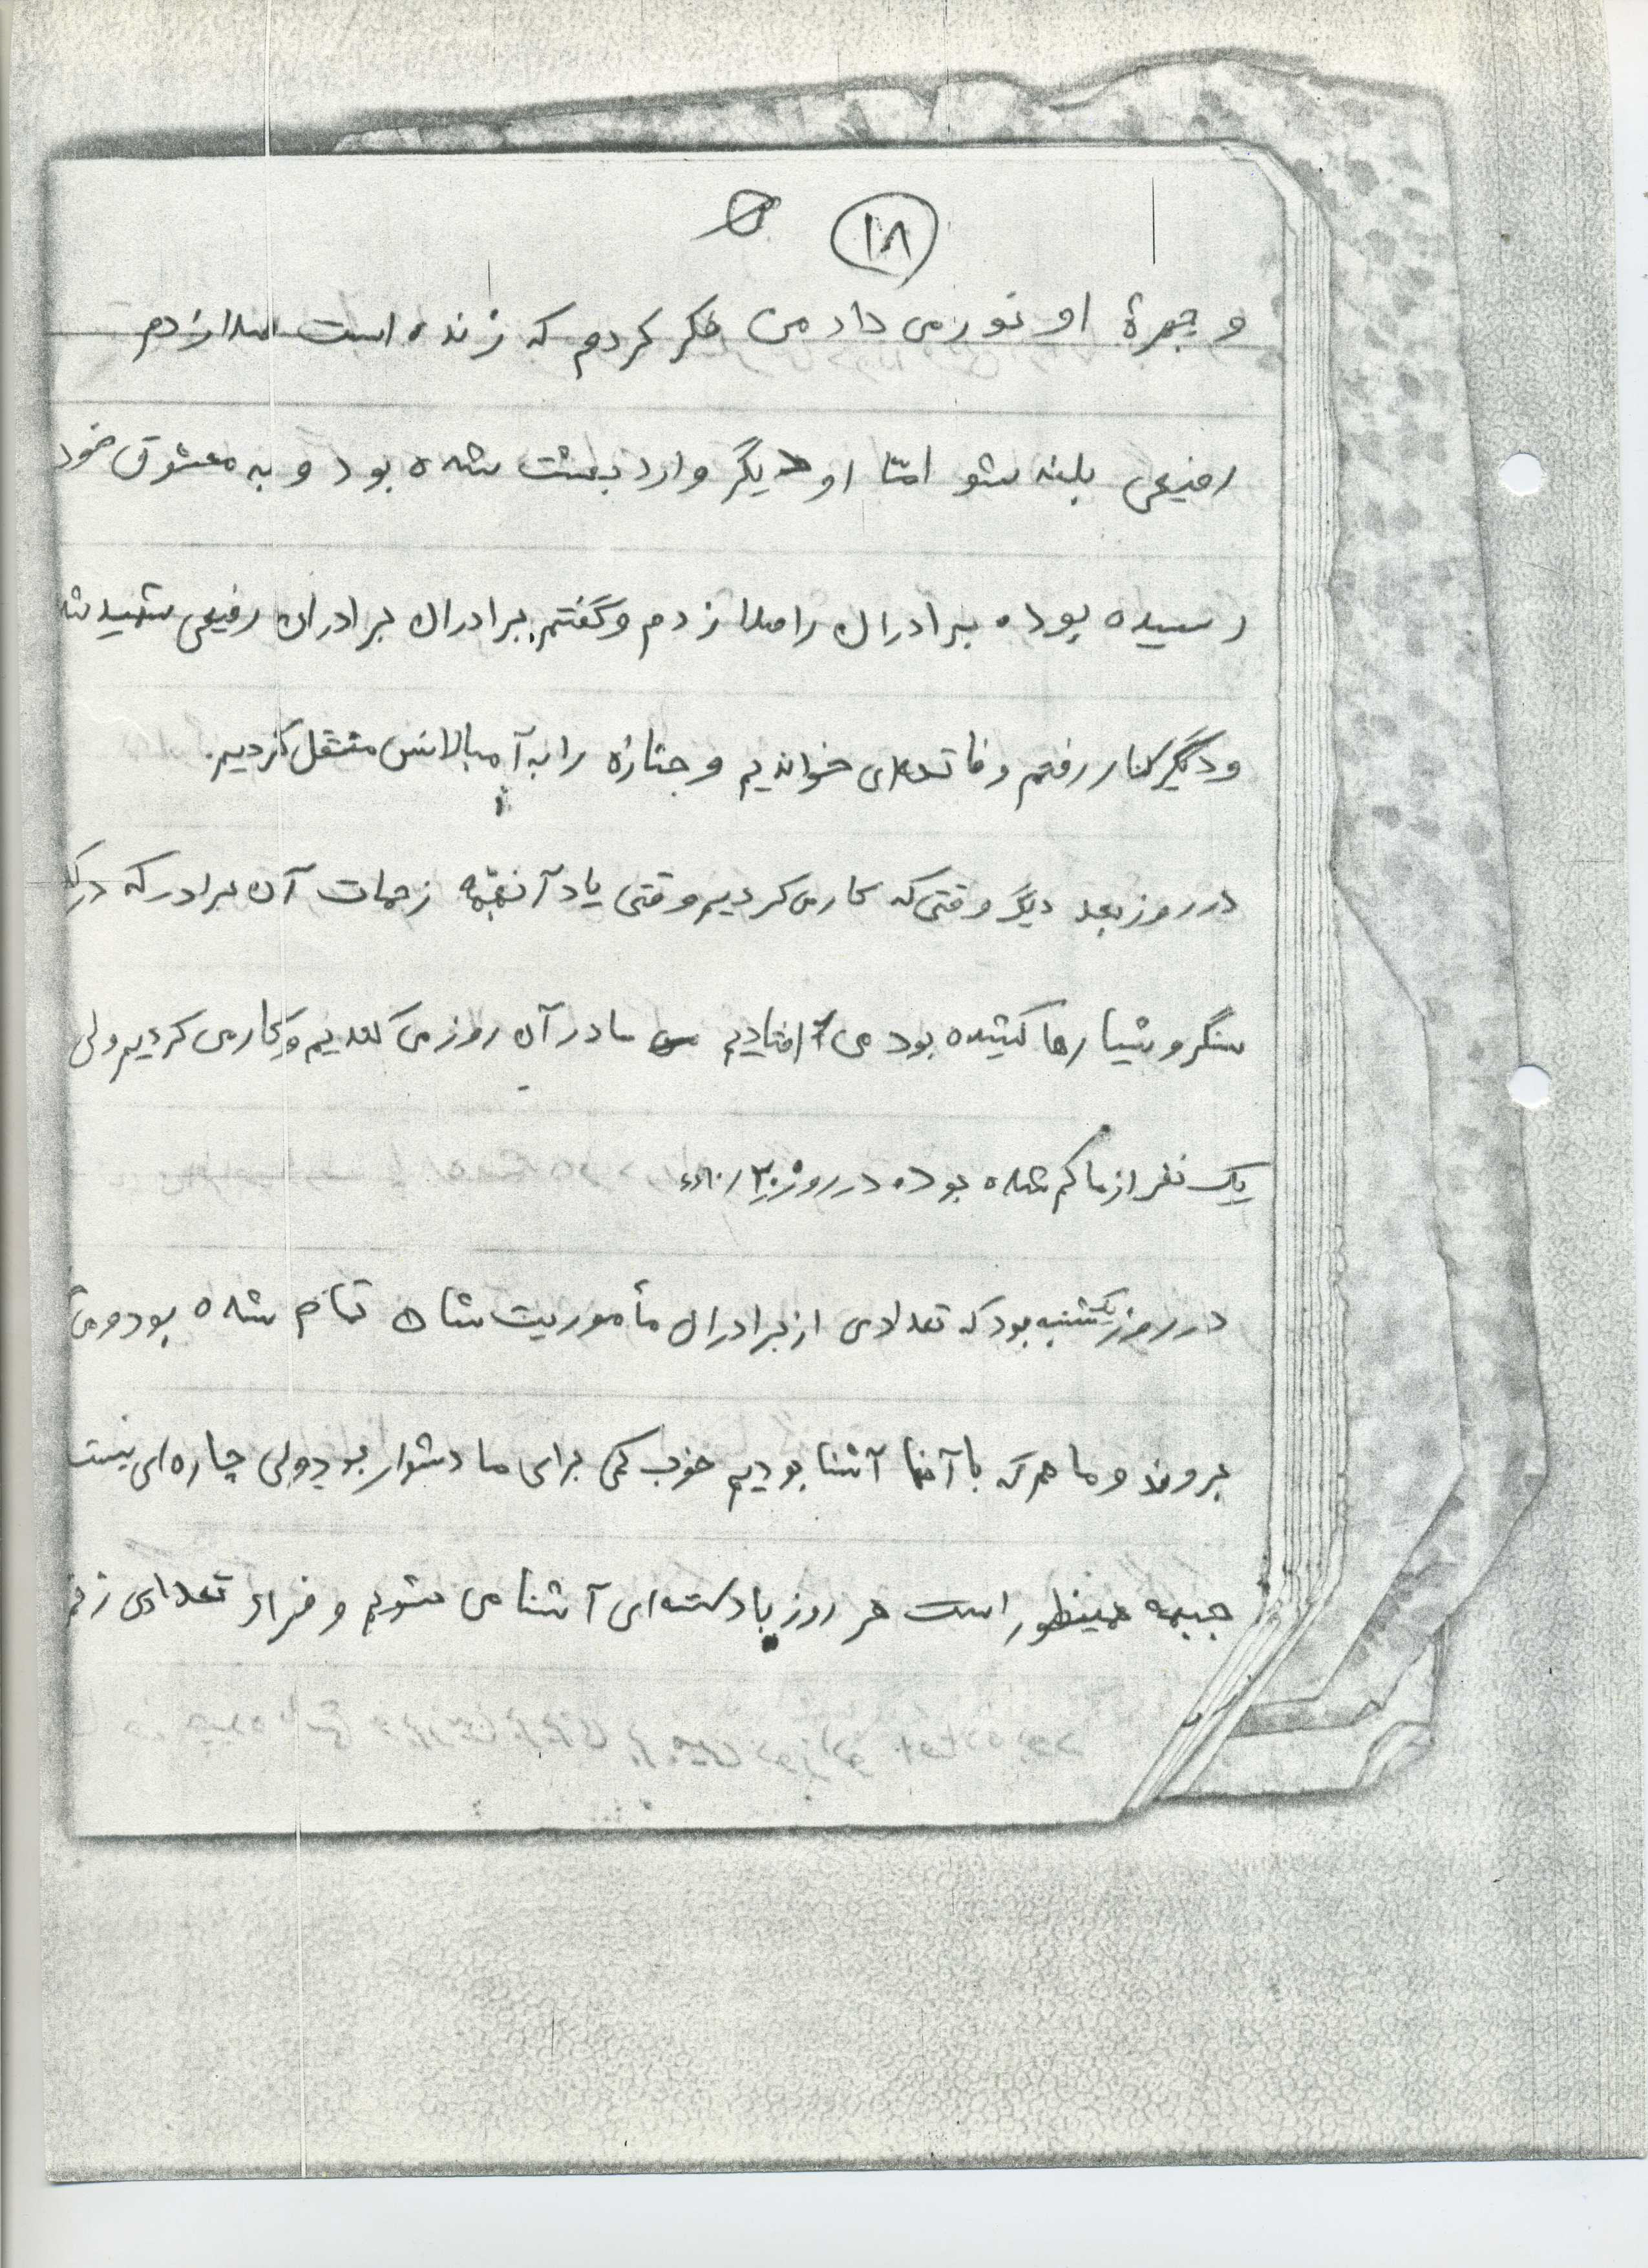 ۱۸
و چهرهٔ او نور می داد من فکر کردم که زنده است صدا زدم
رفیعی بلند شو امّا او دیگر وارد بهشت شده بود و به معشوق خود
رسیده بوده برادران را صدا زدم و گفتم برادران برادران رفیعی شهید شد
و دیگر کنار رفتم و فاتحه‌ای خواندیم و جنازه را به آمبالانس منتقل کردیم.
در روز بعد دیگر وقتی که کار می کردیم وقتی یاد آنهمه زحمات آن برادر که در
سنگر و شیارها کشیده بود می افتادیم ما در آن روز می کندیم و کار می کردیم ولی
یک نفر از ما کم شده بوده در روز
در روز یکشنبه بود که تعدادی از برادران مأموریت شان تمام شده بود و
بروند و ما هم که با آنها آشنا بودیم خوب کمی برای ما دشوار بود ولی چاره‌ای نیست
جبهه همینطور است هر روز با دسته‌ای آشنا می شویم و فردا تعدادی